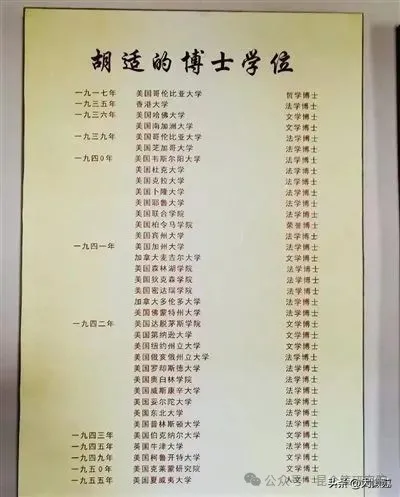 胡适的博士学位
一九一七年 美国哥伦比亚大学 哲学博士
一九三五年 香港大学 法学博士
一九三六年 美国哈佛大学 文学博士
美国南加洲大学 文学博士
一九三九年 美国哥伦比亚大学 法学博士
美国芝加哥大学 法学博士
一九四0年 美国韦斯尔阳大学 法学博士
美国杜克大学 法学博士
美国克拉大学 法学博士
美国卜隆大学 法学博士
美国耶鲁大学 法学博士
美国联合学院 法学博士
美国柏令马学院 荣誉博士
美国宾州大学 法学博士
一九四一年 美国加州大学 法学博士
加拿大麦吉尔大学 文学博士
美国森林湖学院 法学博士
美国狄克森学院 法学博士
美国密达瑞学院 法学博士
加拿大多伦多大学 法学博士
美国佛蒙特州大学 法学博士
一九四二年 美国达脱茅斯学院 文学博士
美国第纳逊大学 文学博士
美国纽约州立大学 文学博士
美国俄亥俄州立大学 法学博士
美国罗却斯德大学 法学博士
美国奥白林学院 法学博士
美国威斯康辛大学 法学博士
美国妥尔陀大学 法学博士
美国东北大学 法学博士
美国普林斯顿大学 法学博士
一九四三年 美国伯克纳尔大学 文学博士
一九四五年 英国牛津大学 法学博士
一九四九年 美国柯鲁开特大学 文学博士
一九五0年 美国克莱蒙研究院 文学博士
一九五五年 美国夏威夷大学 人文博士
公众号
头条